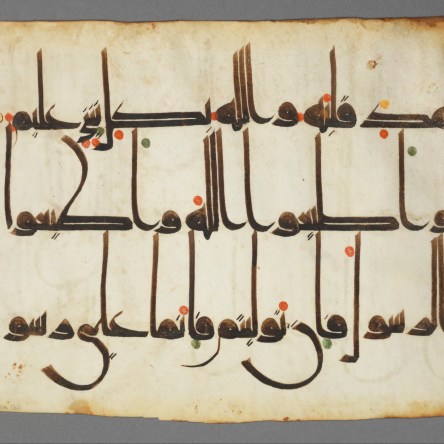 هد قلبه والله بكل شي عليم
واطيعوا الله واطيعوا
الرسول فان توليتم فانما على رسو